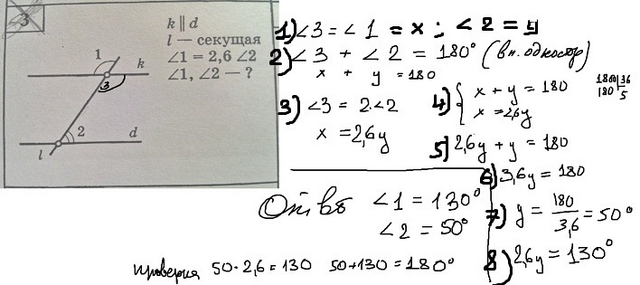 3
k || d
l — секущая
∠1 = 2,6 ∠2
∠1, ∠2 — ?
1
k
3
2
d
l
1) ∠3 = ∠1 = x ; ∠2 = y
2) ∠3 + ∠2 = 180° (вн. одностор)
x + y = 180
3) ∠3 = 2.∠2
x = 2,6y
4) { x + y = 180
x = 2,6y
180 | 36
180 | 5
5) 2,6y + y = 180
6) 3,6y = 180
7) y = 180 / 3,6 = 50°
8) 2,6y = 130°
Ответ ∠1 = 130°
∠2 = 50°
проверка 50 · 2,6 = 130 50 + 130 = 180°